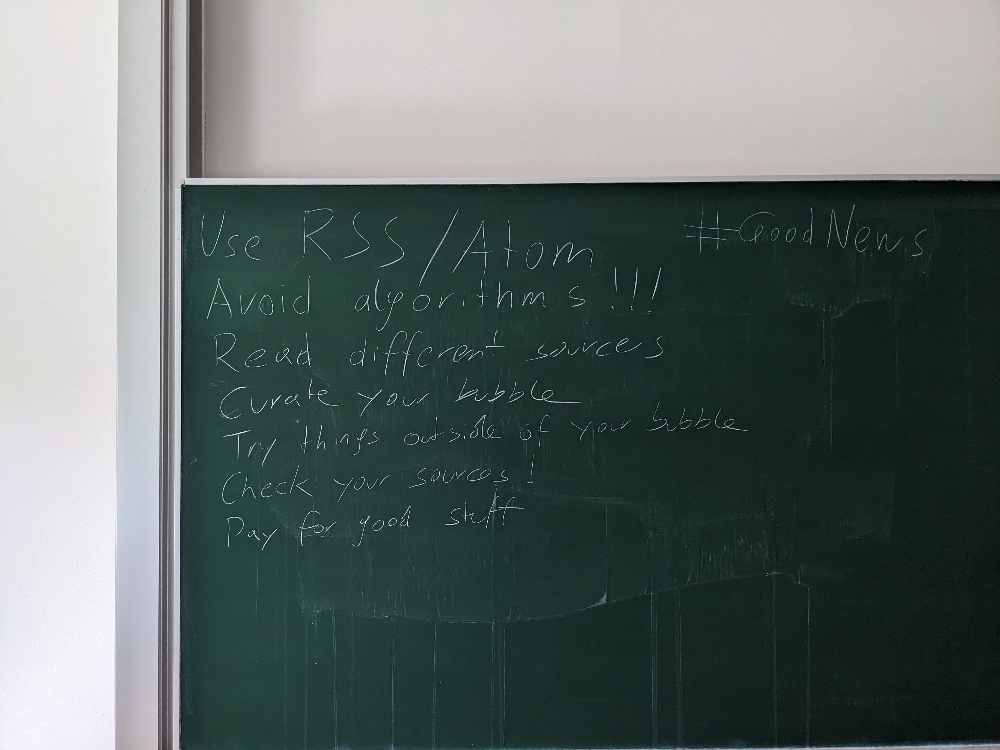 Use RSS/Atom #GoodNews
Avoid algorithms!!!
Read different sources
Curate your bubble
Try things outside of your bubble
Check your sources!
Pay for good stuff